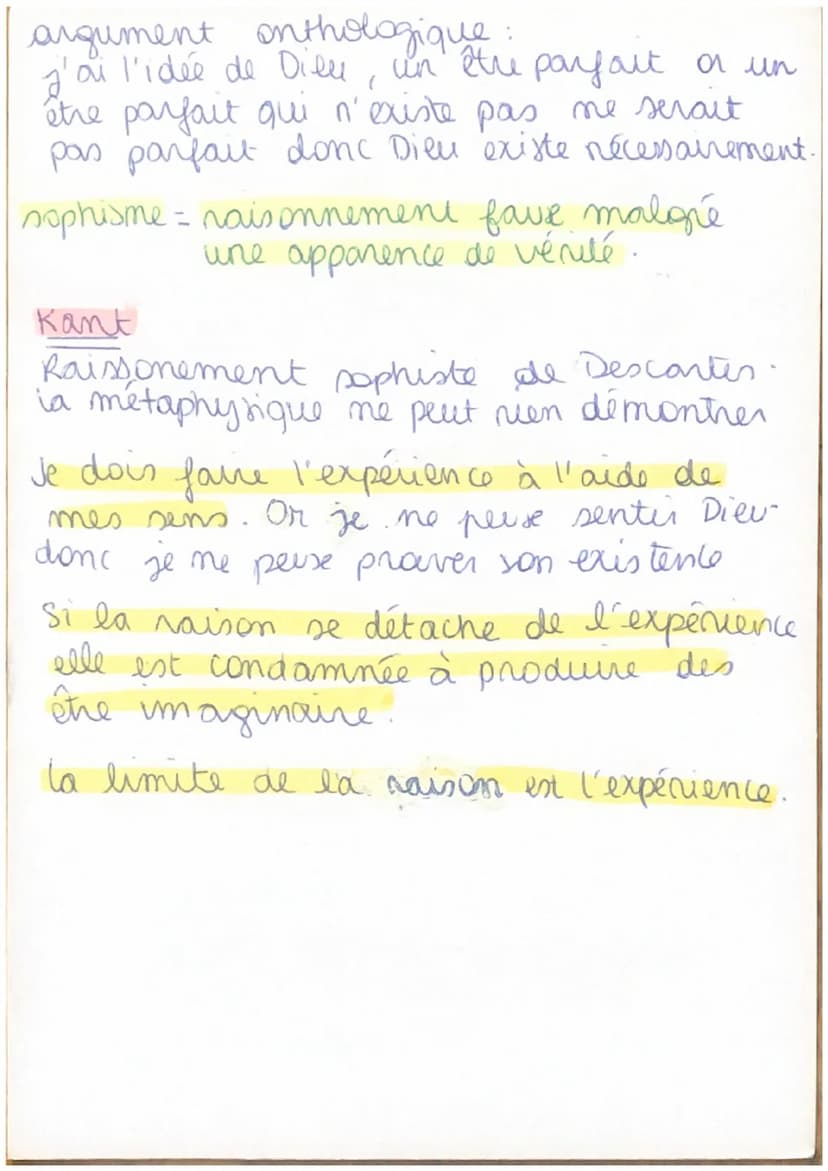 argument onthologique :
j'ai l'idée de Dieu, un être parfait or un
être parfait qui n'existe pas ne serait
pas parfait donc Dieu existe nécessairement.
sophisme = raisonnement faux malgré
une apparence de vérité.
Kant
Raissonement sophiste de Descartes.
la métaphysique ne peut rien démontrer
Je dois faire l'expérience à l'aide de
mes sens. Or je ne peux sentir Dieu
donc je ne peux prouver son existence
Si la raison se détache de l'expérience
elle est condamnée à produire des
être imaginaire.
La limite de la raison est l'expérience.